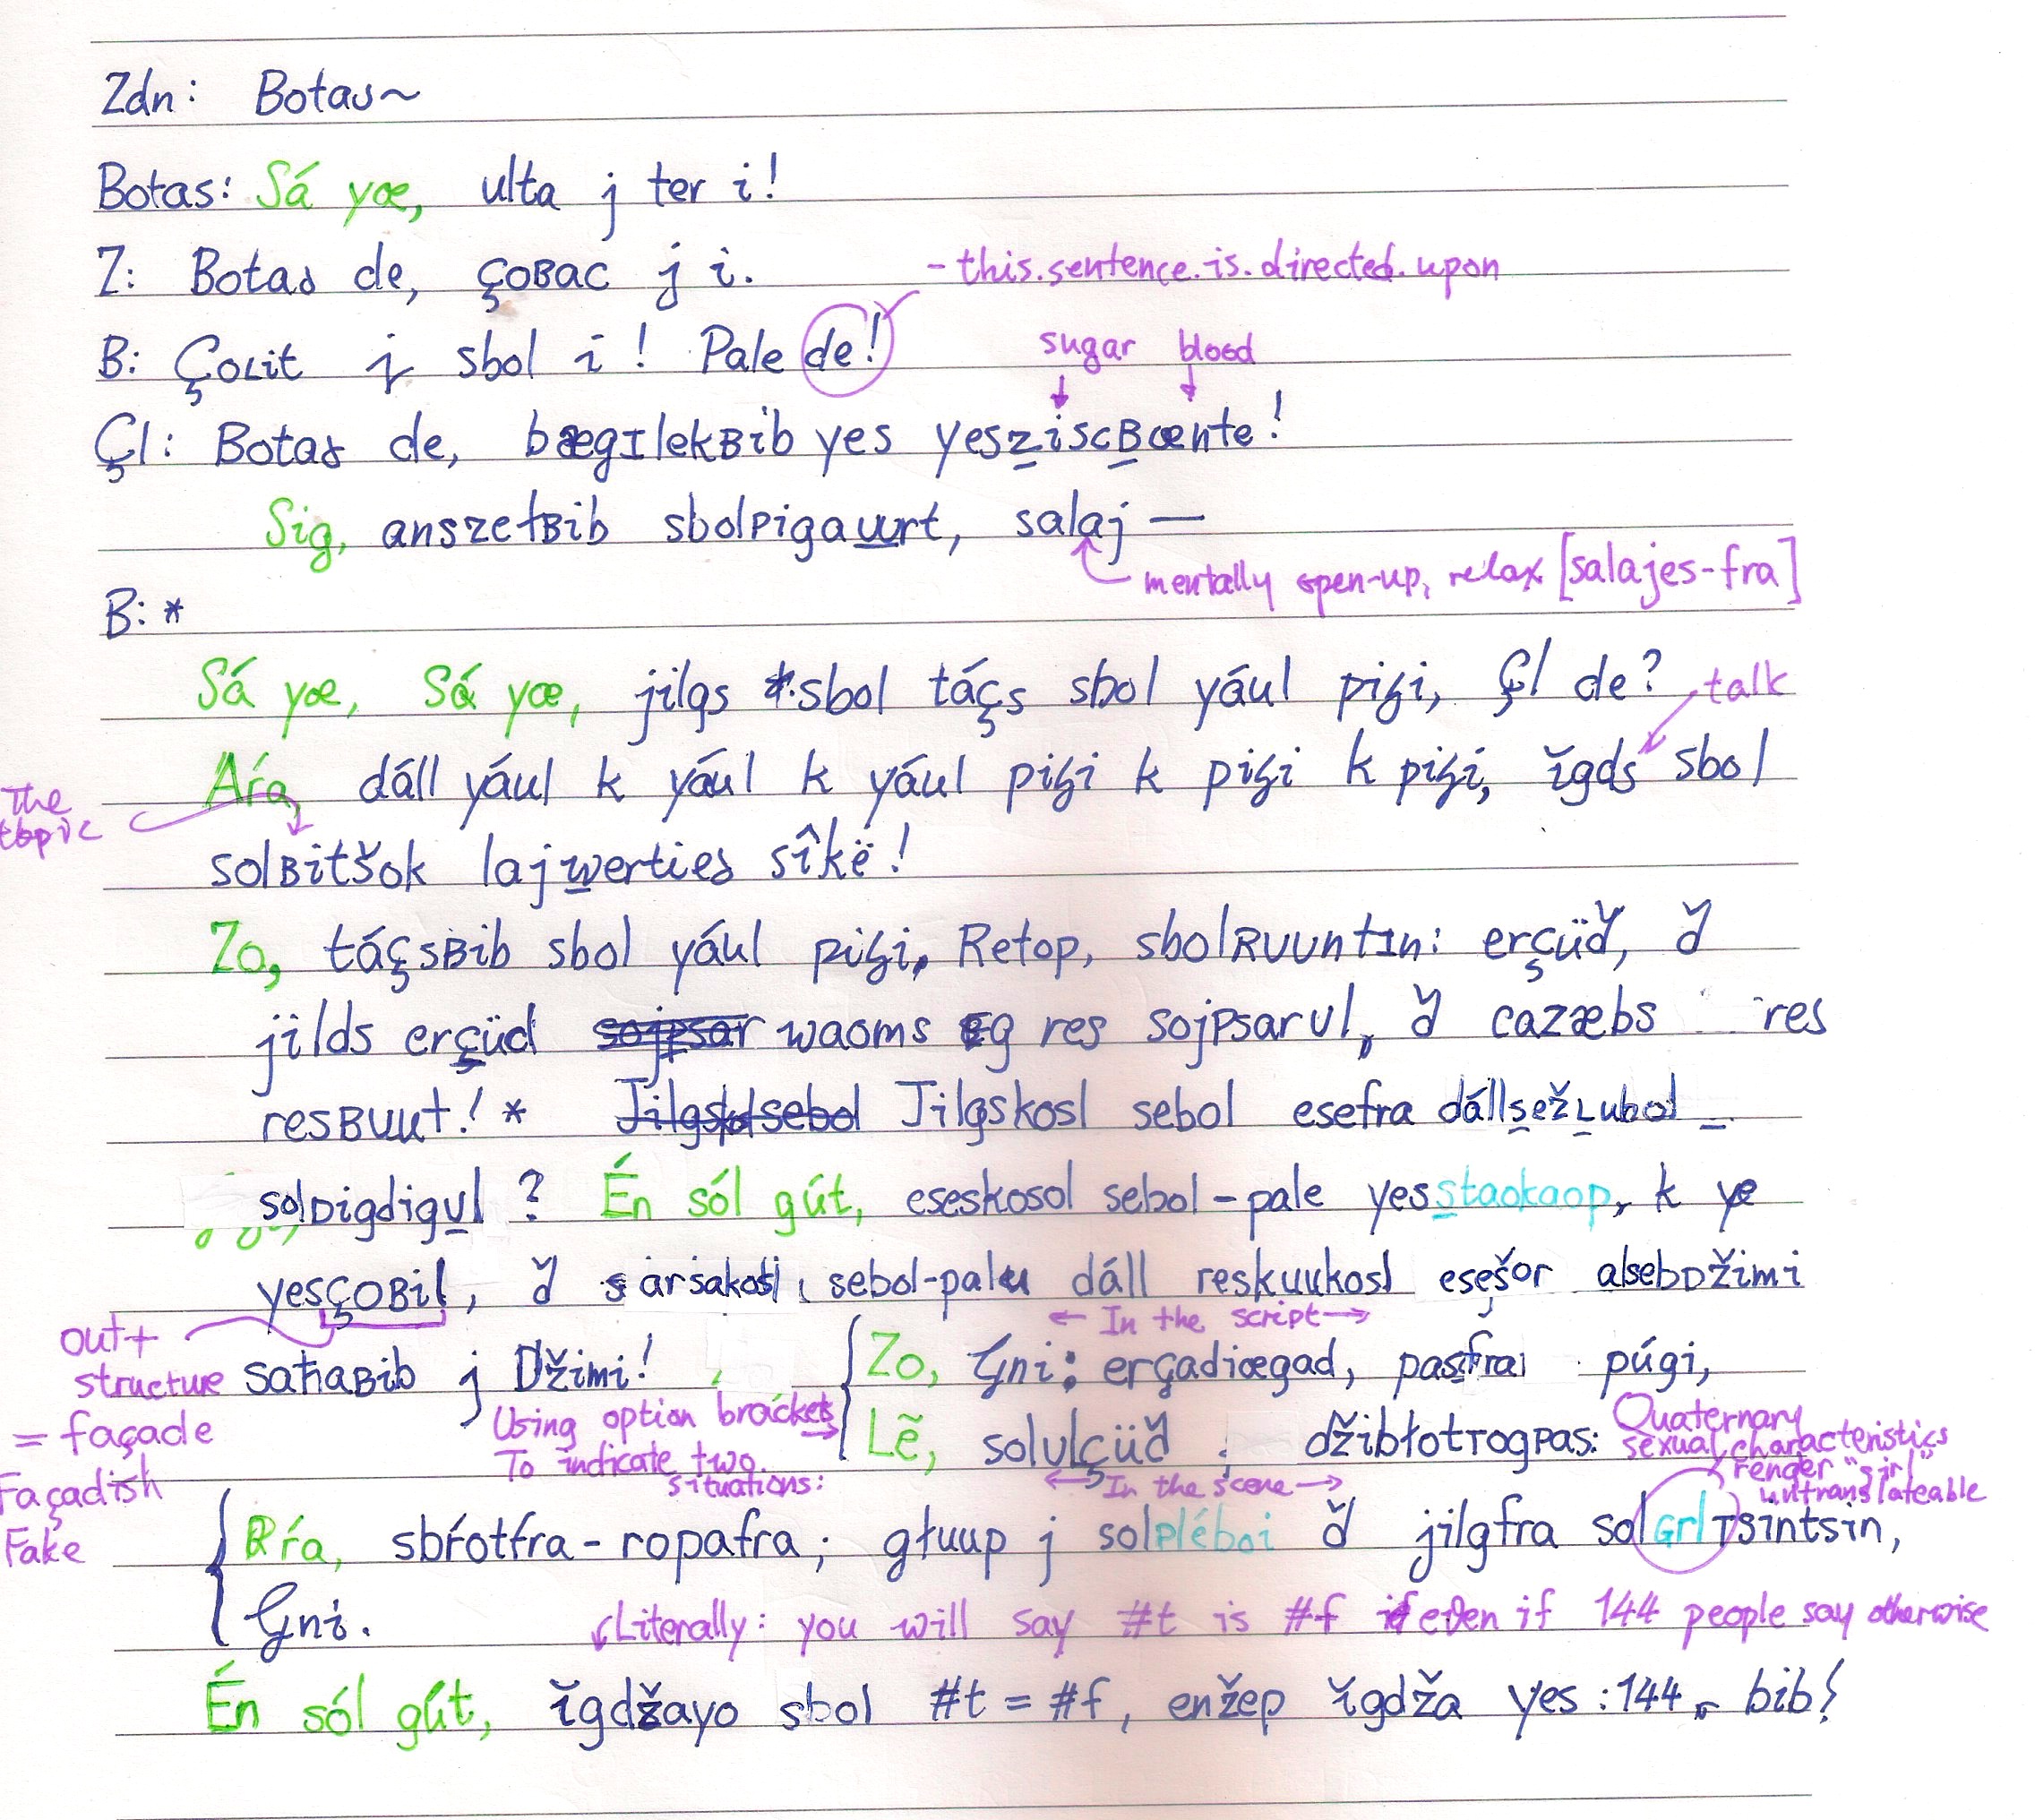 Zdn: Botas~
Botas: Sá yœ, ulta j ter i!
Z: Botas de, çoʙac j i. - this.sentence.is.directed.upon
B: Çoʟit j sbol i! Pale de!
sugar blood
Çl: Botas de, bægɪlekʙib yes yesziscʙœnte!
Sig, anszetʙib sbolᴘigauurt, salaj —
mentally open-up, relax [salajes-fra]
B: *
Sá yœ, Sá yœ, jilgs sbol táçs sbol yául piɟi, Çl de? talk
Aŕa, dáll yául k yául k yául piɟi k piɟi k piɟi, ǐgds sbol
The topic
solʙitšok lajwerties sîkë!
Zo, táçsʙib sbol yául piɟi. Retop, sbolʀuuntɪn: erçüď, ď
jilds erçüd waoms eg res sojᴘsarul, ď cazæbs res
resʙuut! * Jilgskosl sebol esefra dállsežʟubol
solᴅigdigul? Én sól gút, eseskosol sebol-pale yesstaokaop, k ye
yesçoʙil, ď sebol-pale dáll reskuukosl esešor alsebᴅžimi
out + structure = façade
Façadish
Fake
← In the script →
saħaʙib j Džimi! Zo, Gni: erçadiægad, pasfra púgi,
Using option brackets
To indicate two situations:
Lẽ, solulçüď džibłotʀogᴘas:
← In the scene →
Quaternary sexual characteristics render "girl" untranslateable
Rŕa, sbŕotfra-ropafra; głuup j solpléboi ď jilgfra solɢrlᴛsintsin,
Gni.
Literally: you will say #t is #f even if 144 people say otherwise
Én sól gút, ǐgdžayo sbol #t = #f, enžep ǐgdža yes :144 bib!